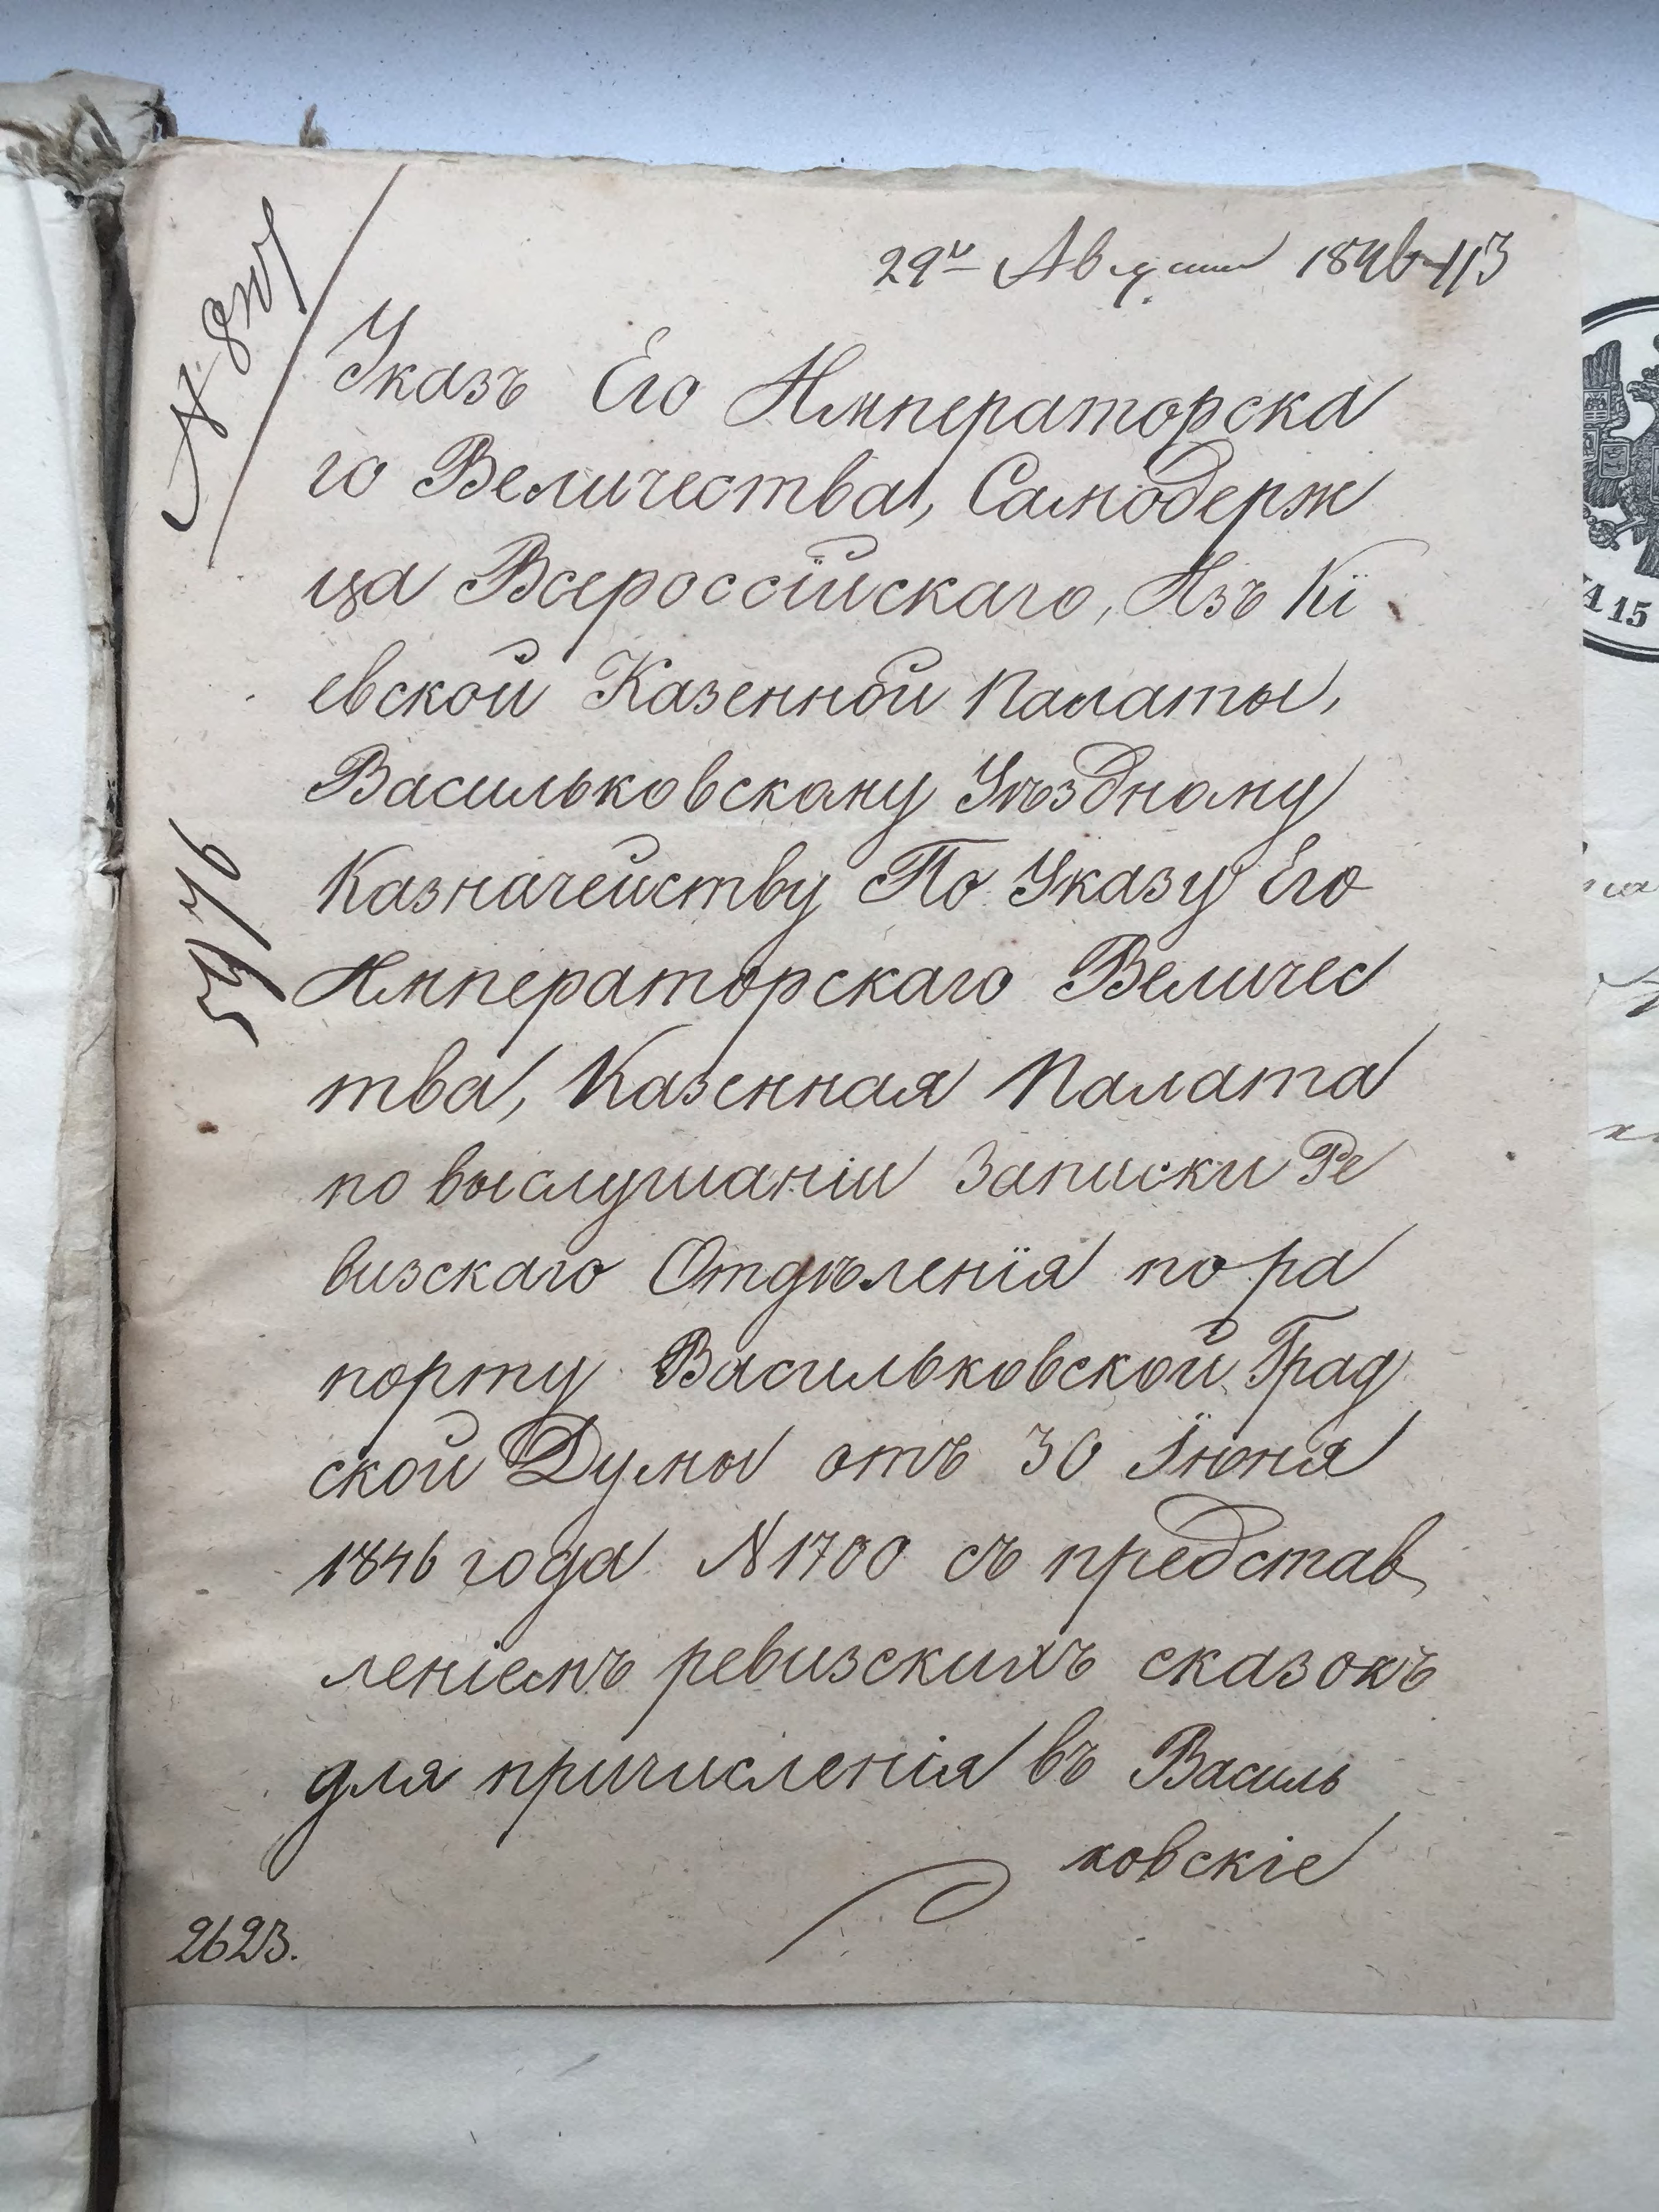 29го Августа 1846 113
Указъ Его Императорска
го Величества, Самодерж
ца Всероссійскаго, Изъ Кі
евской Казенной Палаты,
Васильковскому Уѣздному
Казначейству По Указу Его
Императорскаго Величес
тва, Казенная Палата
по выслушаніи Записки Ре
визскаго Отдѣленія по ра
порту Васильковской Град
ской Думы отъ 30 Іюня
1846 года N 1700 съ представ
леніемъ ревизскихъ сказокъ
для причисленія въ Василь
ковскіе
2623.
А 15